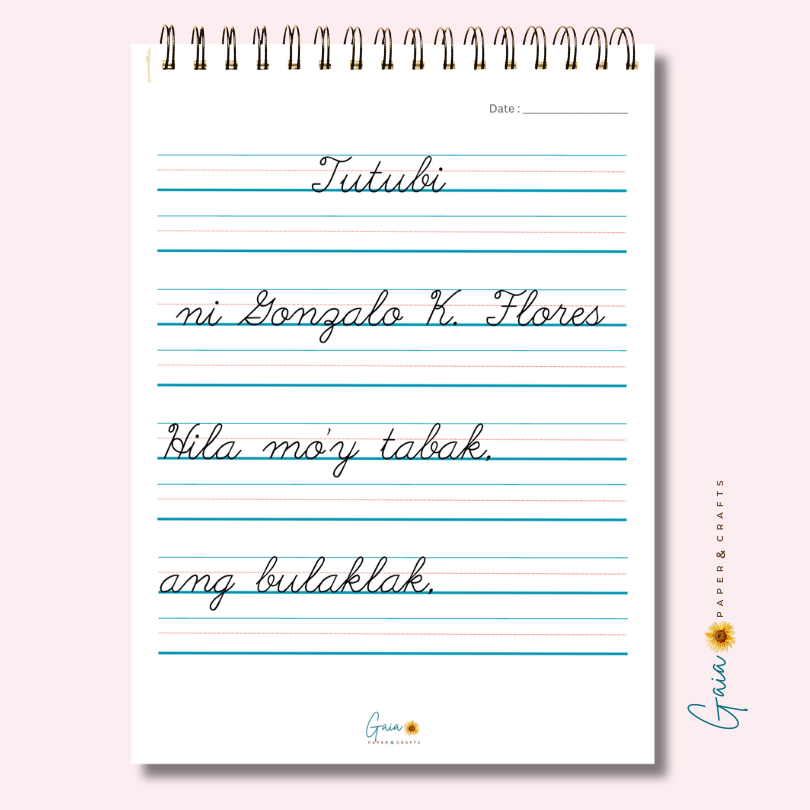 Date : ____________
Tutubi
ni Gonzalo K. Flores
Hila mo'y tabak,
ang bulaklak,
Gaia
PAPER & CRAFTS
Gaia
PAPER & CRAFTS